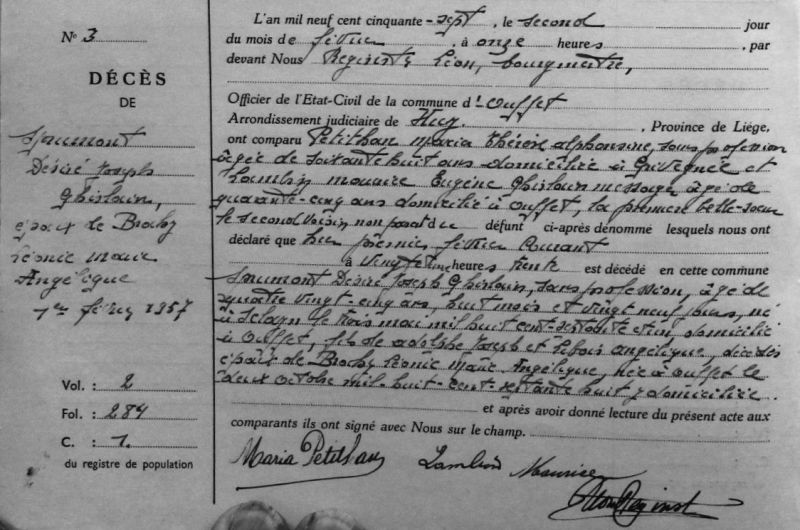 N° 3
DÉCÈS
DE
Saumont
Désiré Joseph
Ghislain,
époux de Brochy
Léonie Marie
Angélique
1er février 1957
Vol. : 2
Fol. : 284
C. : 1.
du registre de population
L'an mil neuf cent cinquante-sept, le second jour
du mois de février, à onze heures, par
devant Nous Reginster Léon, bourgmestre,
Officier de l'Etat-Civil de la commune d'Ouffet
Arrondissement judiciaire de Huy, Province de Liège,
ont comparu Petithan Maria Thérèse Alphonsine, sans profession
âgée de soixante huit ans domiciliée à Grivegnée et
Lambin Maurice Eugène Ghislain messager, âgé de
quarante-cinq ans domicilié à Ouffet, la première belle-soeur
le second voisin non parent du défunt ci-après dénommé lesquels nous ont
déclaré que le premier février courant
à vingt et une heures trente est décédé en cette commune
Saumont Désiré Joseph Ghislain, sans profession, âgé de
quatre vingt-cinq ans, huit mois et vingt neuf jours, né
à Sclayn le trois mai mil huit cent septante et un domicilié
à Ouffet, fils de Adolphe Joseph et Lefois Angélique, décédés
époux de Brochy Léonie Marie Angélique, née à Ouffet le
deux octobre mil-huit-cent-septante huit y domiciliée.
et après avoir donné lecture du présent acte aux
comparants ils ont signé avec Nous sur le champ.
Maria Petithan Lambin Maurice
Léon Reginst